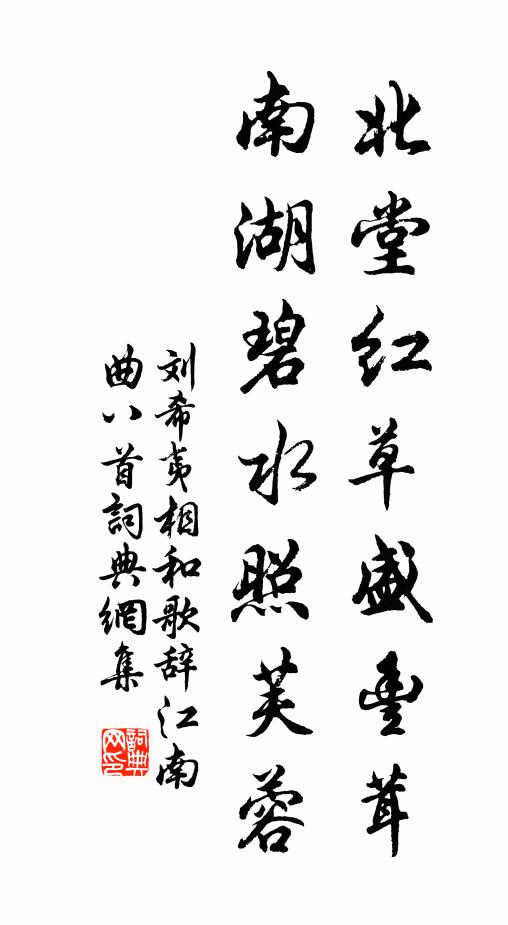 北堂红草盛豐茸
南湖碧水照芙蓉
刘希夷相和歌辞江南
曲八首詞典網集
詞典网印